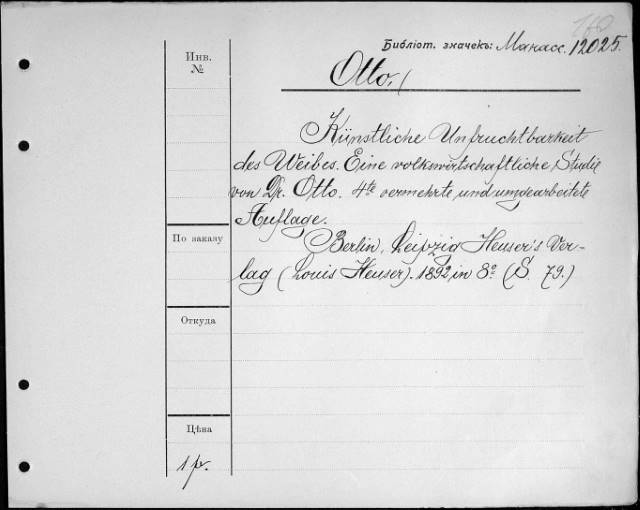 Библіот. значекъ: Манасс. 12025.
Инв.
№
Otto.
Künstliche Unfruchtbarkeit
des Weibes. Eine volkswirtschaftliche Studie
von Dr. Otto. 4te vermehrte und umgearbeitete
Auflage.
По заказу
Berlin, Leipzig Heuser's Ver-
lag (Louis Heuser). 1892, in 8º (S. 79.)
Откуда
Цѣна
1 р.